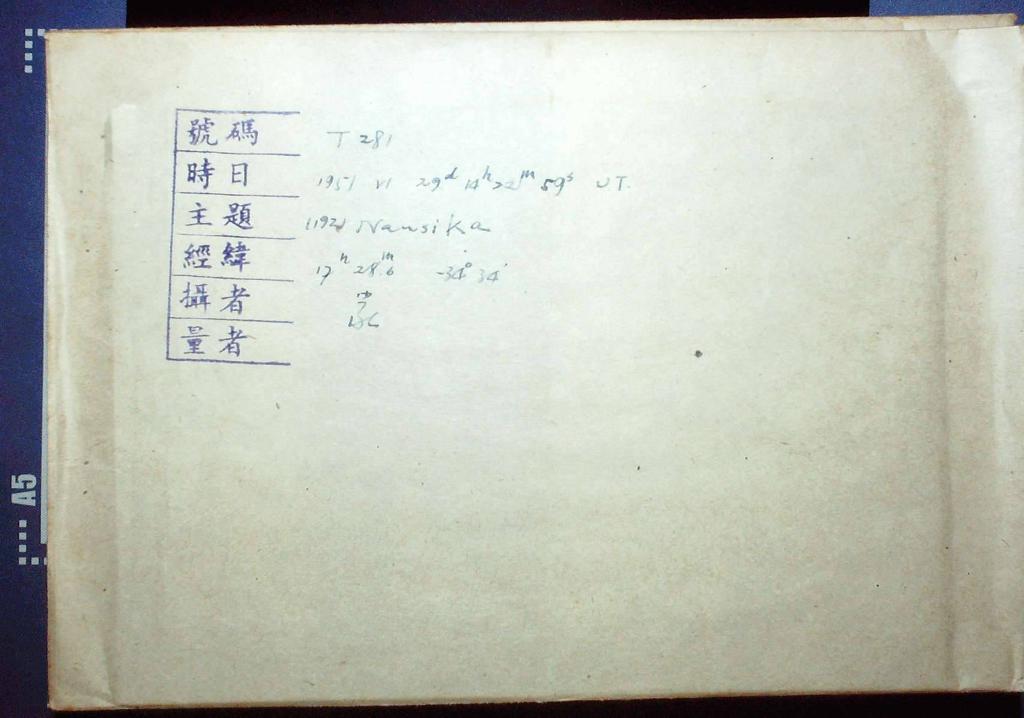 號碼 T 281
時日 1951 VI 29d 14h 22m 59s UT.
主題 (192) Nausika
經緯 17h 28m.6 -34° 34'
攝者
量者
A5